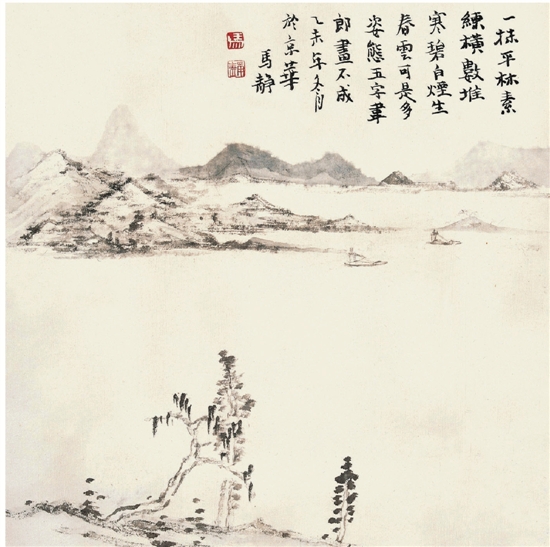 一抹平林素
練橫數堆
寒碧白煙生
春雲可是多
姿態五字韋
郎畫不成
乙未年冬月
於京華
馬靜